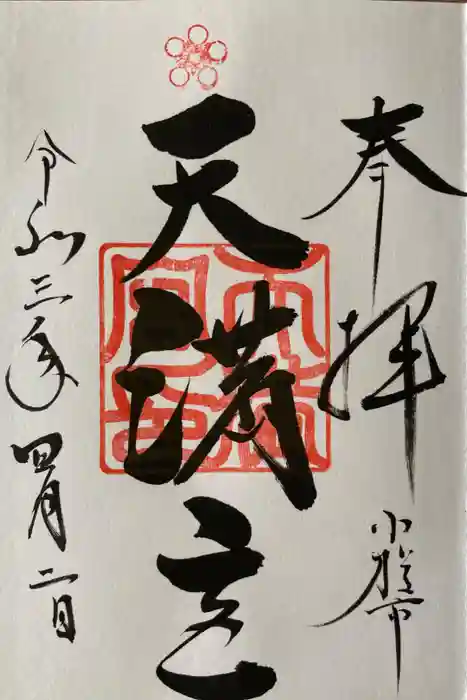 奉拝
天満宮
令和三年四月二日